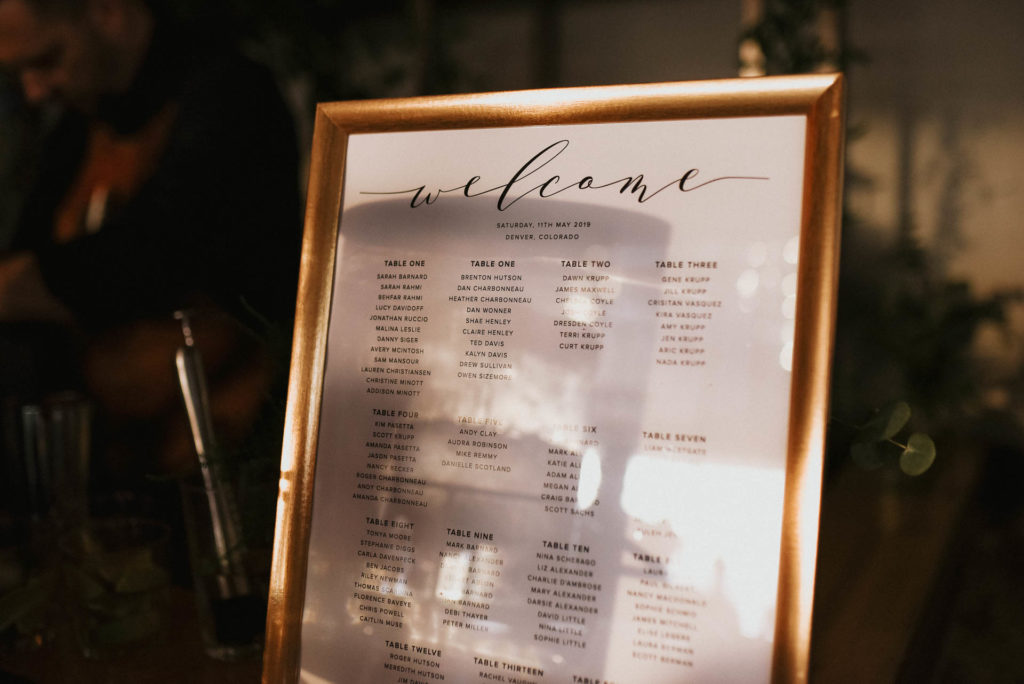 welcome
SATURDAY, 11TH MAY 2019
DENVER, COLORADO
TABLE ONE
SARAH BARNARD
SARAH RAHMI
BEHFAR RAHMI
LUCY DAVIDOFF
JONATHAN RUCCIO
MALINA LESLIE
DANNY SIGER
AVERY MCINTOSH
SAM MANSOUR
LAUREN CHRISTIANSEN
CHRISTINE MINOTT
ADDISON MINOTT
TABLE ONE
BRENTON HUTSON
DAN CHARBONNEAU
HEATHER CHARBONNEAU
DAN WONNER
SHAE HENLEY
CLAIRE HENLEY
TED DAVIS
KALYN DAVIS
DREW SULLIVAN
OWEN SIZEMORE
TABLE TWO
DAWN KRUPP
JAMES MAXWELL
CHELSEA COYLE
JOSH COYLE
DRESDEN COYLE
TERRI KRUPP
CURT KRUPP
TABLE THREE
GENE KRUPP
JILL KRUPP
CRISITAN VASQUEZ
KIRA VASQUEZ
AMY KRUPP
JEN KRUPP
ARIC KRUPP
NADA KRUPP
TABLE FOUR
KIM PASETTA
SCOTT KRUPP
AMANDA PASETTA
JASON PASETTA
NANCY BECKER
ROGER CHARBONNEAU
ANDY CHARBONNEAU
AMANDA CHARBONNEAU
TABLE FIVE
ANDY CLAY
AUDRA ROBINSON
MIKE REMMY
DANIELLE SCOTLAND
TABLE SIX
MARK
KATIE
ADAM
MEGAN
CRAIG
SCOTT SACHS
TABLE SEVEN
LIAM WESTGATE
TABLE EIGHT
TONYA MOORE
STEPHANIE DIGGS
CARLA DAVENPECK
BEN JACOBS
RILEY NEWMAN
JASON SCAVONA
FLORENCE BAVEYE
CHRIS POWELL
CAITLIN MUSE
TABLE NINE
MARK BARNARD
ALEXANDER
BARNARD
DEBI THAYER
PETER MILLER
TABLE TEN
NINA SCHERAGO
LIZ ALEXANDER
CHARLIE D'AMBROSE
MARY ALEXANDER
DARSIE ALEXANDER
DAVID LITTLE
NINA LITTLE
SOPHIE LITTLE
TABLE
PAUL
NANCY MACDONALD
SOPHIE SCHMID
JAMES MITCHELL
LAURA BERMAN
SCOTT BERMAN
TABLE TWELVE
ROGER HUTSON
MEREDITH HUTSON
TABLE THIRTEEN